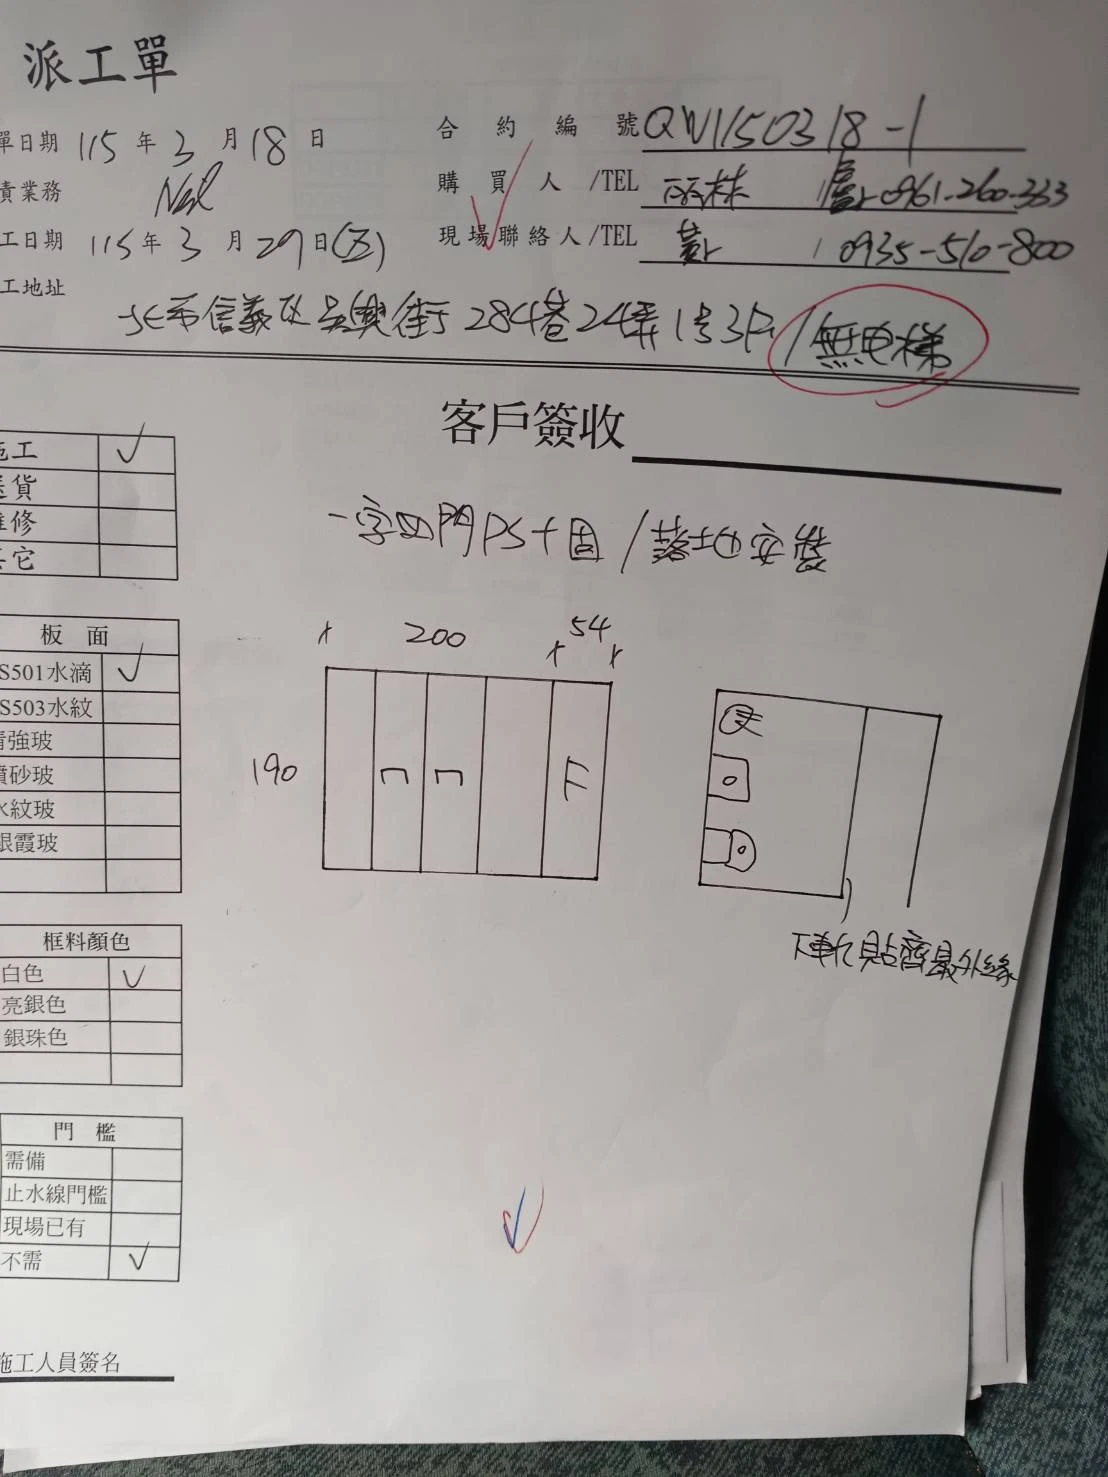 派工單
單日期 115 年 3 月 18 日
合約編號 QW1150318-1
責業務 Neil
購買人/TEL 丽林 盧r 0961-260-333
工日期 115年 3 月 29日(五)
現場聯絡人/TEL 黃r 0935-510-800
工地址
北市信義区吳興街284巷24弄1号3F/無电梯
客戶簽收
施工 ✓
送貨
維修
其它
一字四門PS+固/落地安裝
板面
S501水滴 ✓
S503水紋
清強玻
噴砂玻
水紋玻
銀霞玻
200
54
190
F
下軌貼齊最外緣
框料顏色
白色 ✓
亮銀色
銀珠色
門檻
需備
止水線門檻
現場已有
不需 ✓
施工人員簽名